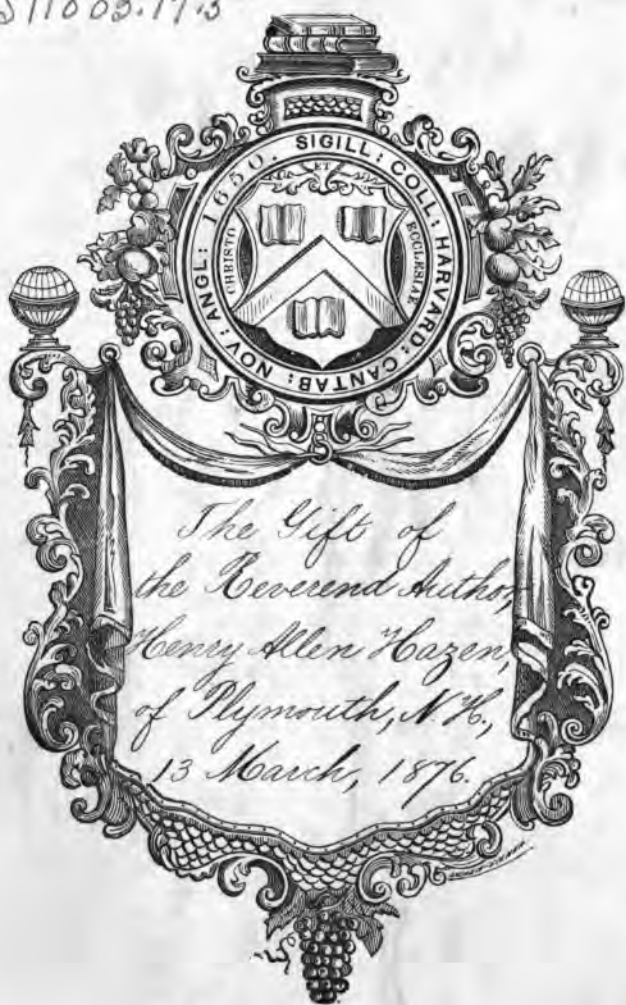 11003.17.5
SIGILL: COLL: HARVARD: CANTAB: NOV: ANGL: 1650.
ET
CHRISTO
ECCLESIAE
The Gift of
the Reverend Author,
Henry Allen Hazen,
of Plymouth, N.H.,
13 March, 1876.